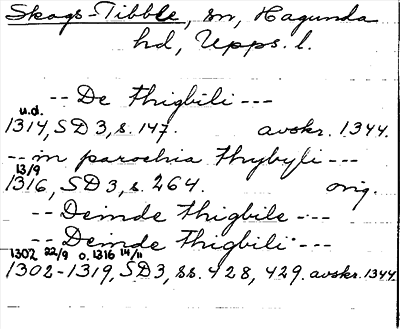 Skogs-Tibble, sn, Hagunda
hd, Upps. l.
-- De thigbili ---
u.d.
1314, SD 3, s. 147. avskr. 1344.
-- in parochia thybyli ---
13/9
1316, SD 3, s. 264. orig.
-- Deinde thigbile ---
-- Deinde thigbili ---
1302 22/9 o. 1316 14/11
1302-1319, SD 3, ss. 428, 429. avskr. 1344